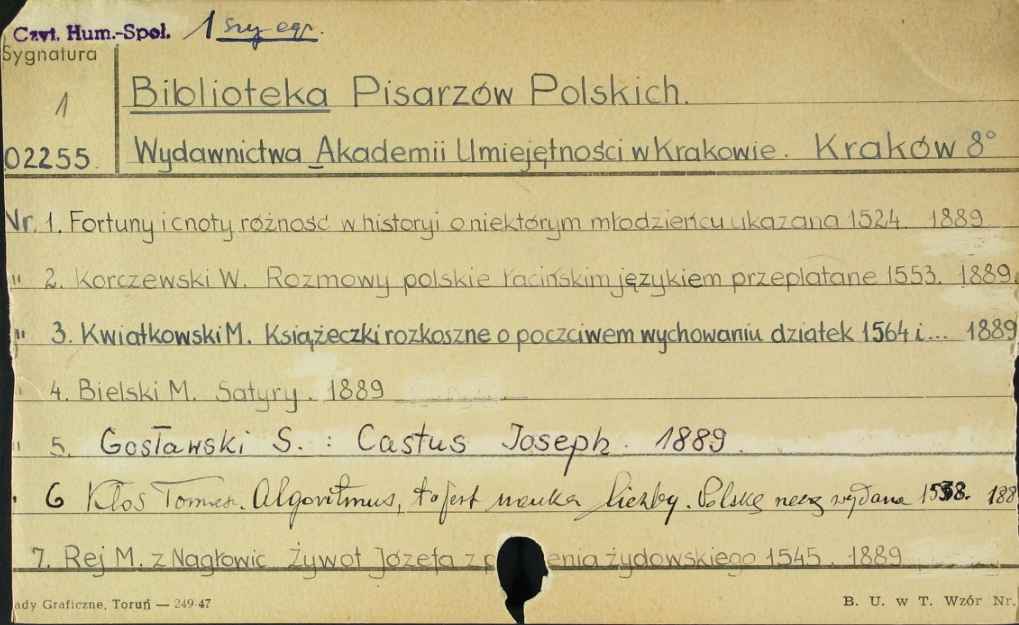 Czyt. Hum.-Społ. 1 szy egz.
Sygnatura
1
02255.
Biblioteka Pisarzów Polskich.
Wydawnictwa Akademii Umiejętności w Krakowie. Kraków 8°
Nr. 1. Fortuny i cnoty różność w historyi o niektórym młodzieńcu ukazana 1524. 1889
" 2. Korczewski W. Rozmowy polskie łacińskim językiem przeplatane 1553. 1889.
" 3. Kwiatkowski M. Książeczki rozkoszne o poczciwem wychowaniu dziatek 1564 i... 1889
" 4. Bielski M. Satyry. 1889
" 5. Gosławski S. : Castus Joseph. 1889.
" 6 Kłos Tomasz. Algoritmus, to jest nauka liczby. Polską rzeczą wydana 1538. 188
7. Rej M. z Nagłowic Żywot Józefa z p enia żydowskiego 1545. 1889
ady Graficzne, Toruń — 249-47
B. U. w T. Wzór Nr.